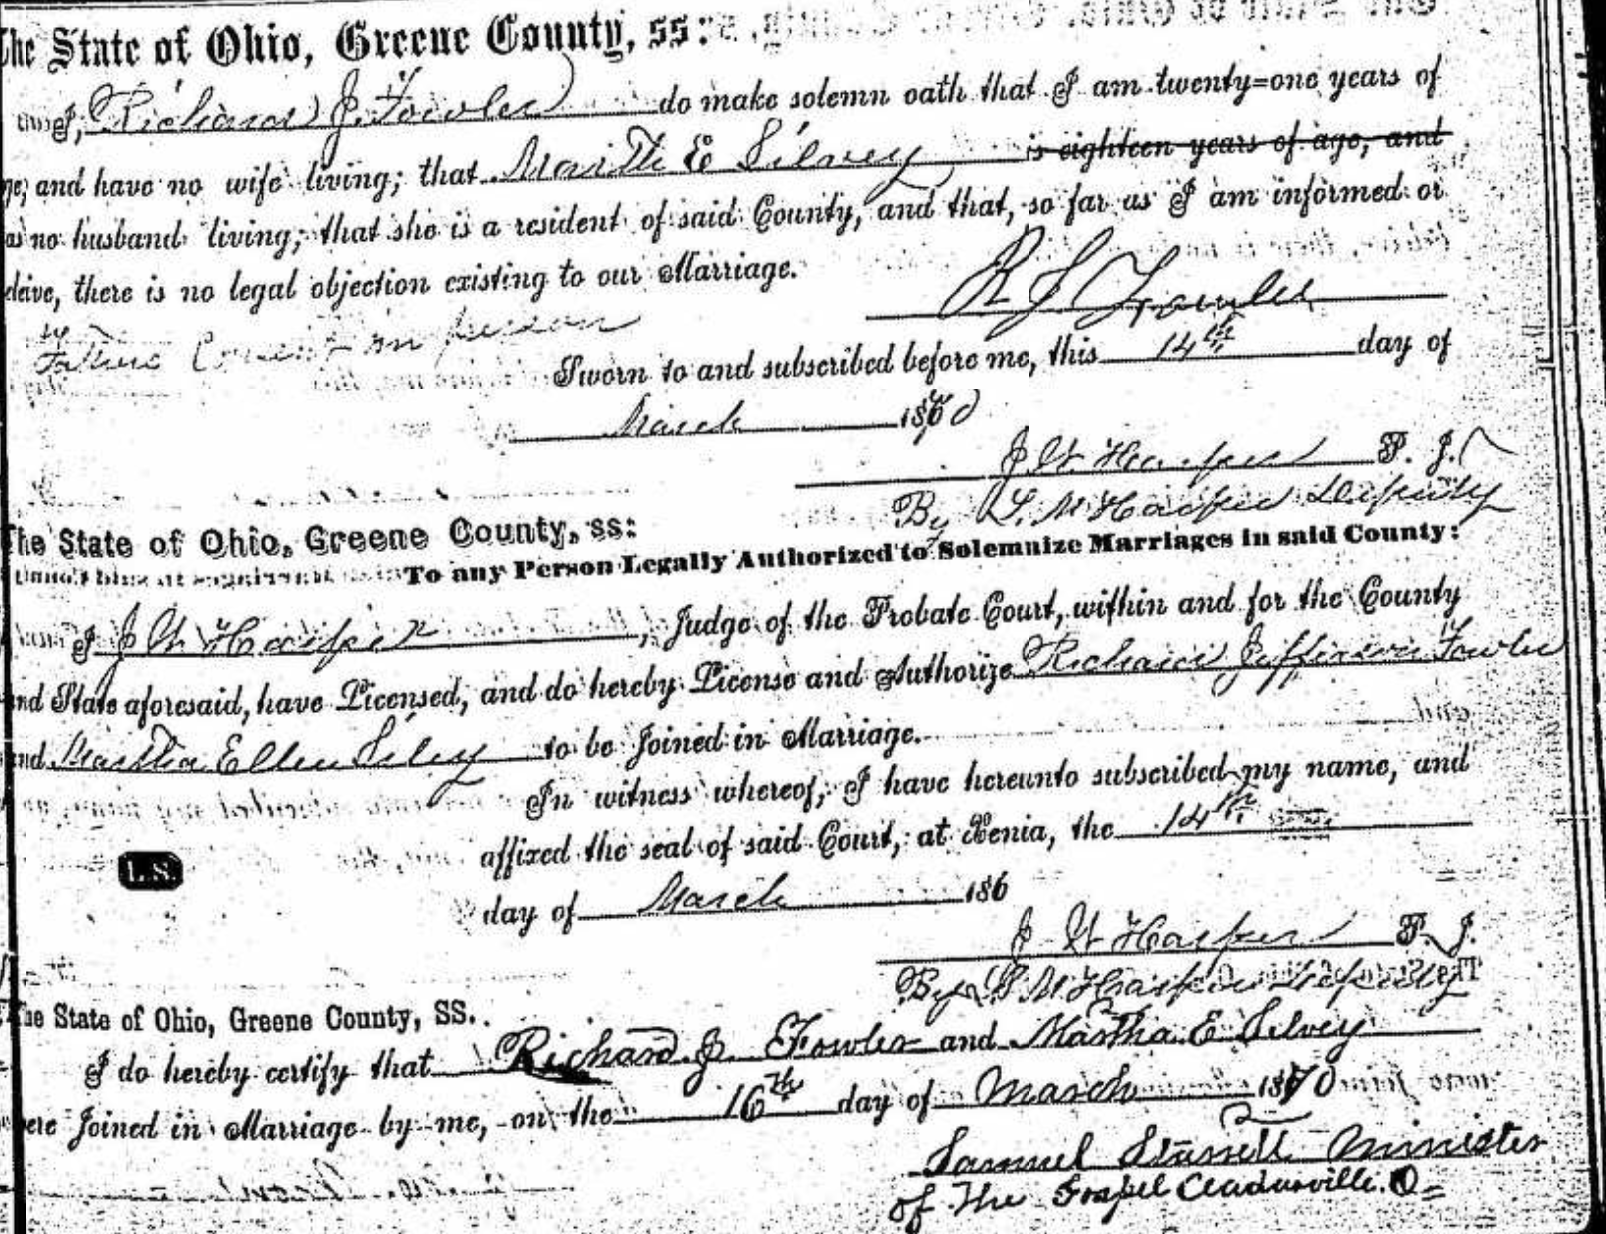 The State of Ohio, Greene County, ss:
I, Richard J. Fowler do make solemn oath that I am twenty=one years of
ge, and have no wife living; that Marth E Silvey is eighteen years of age, and
as no husband living; that she is a resident of said County, and that, so far as I am informed or
elieve, there is no legal objection existing to our Marriage.
R J Fowler
Consent in person
Sworn to and subscribed before me, this 14th day of
March 1870
J W Harper P. J.
By L. M Harper Deputy
The State of Ohio, Greene County, ss:
To any Person Legally Authorized to Solemnize Marriages in said County:
I J W Harper, Judge of the Probate Court, within and for the County
and State aforesaid, have Licensed, and do hereby License and Authorize Richard Jefferson Fowler
nd Martha Ellen Silvy to be Joined in Marriage.
In witness whereof, I have hereunto subscribed my name, and
affixed the seal of said Court, at Xenia, the 14th
L. S.
day of March 186
J W Harper P. J.
By L M Harper Deputy
The State of Ohio, Greene County, SS.
I do hereby certify that Richard J. Fowler and Martha E Silvey
were Joined in Marriage by me, on the 16th day of March 1870
Samuel Minister
of The Gospel O=